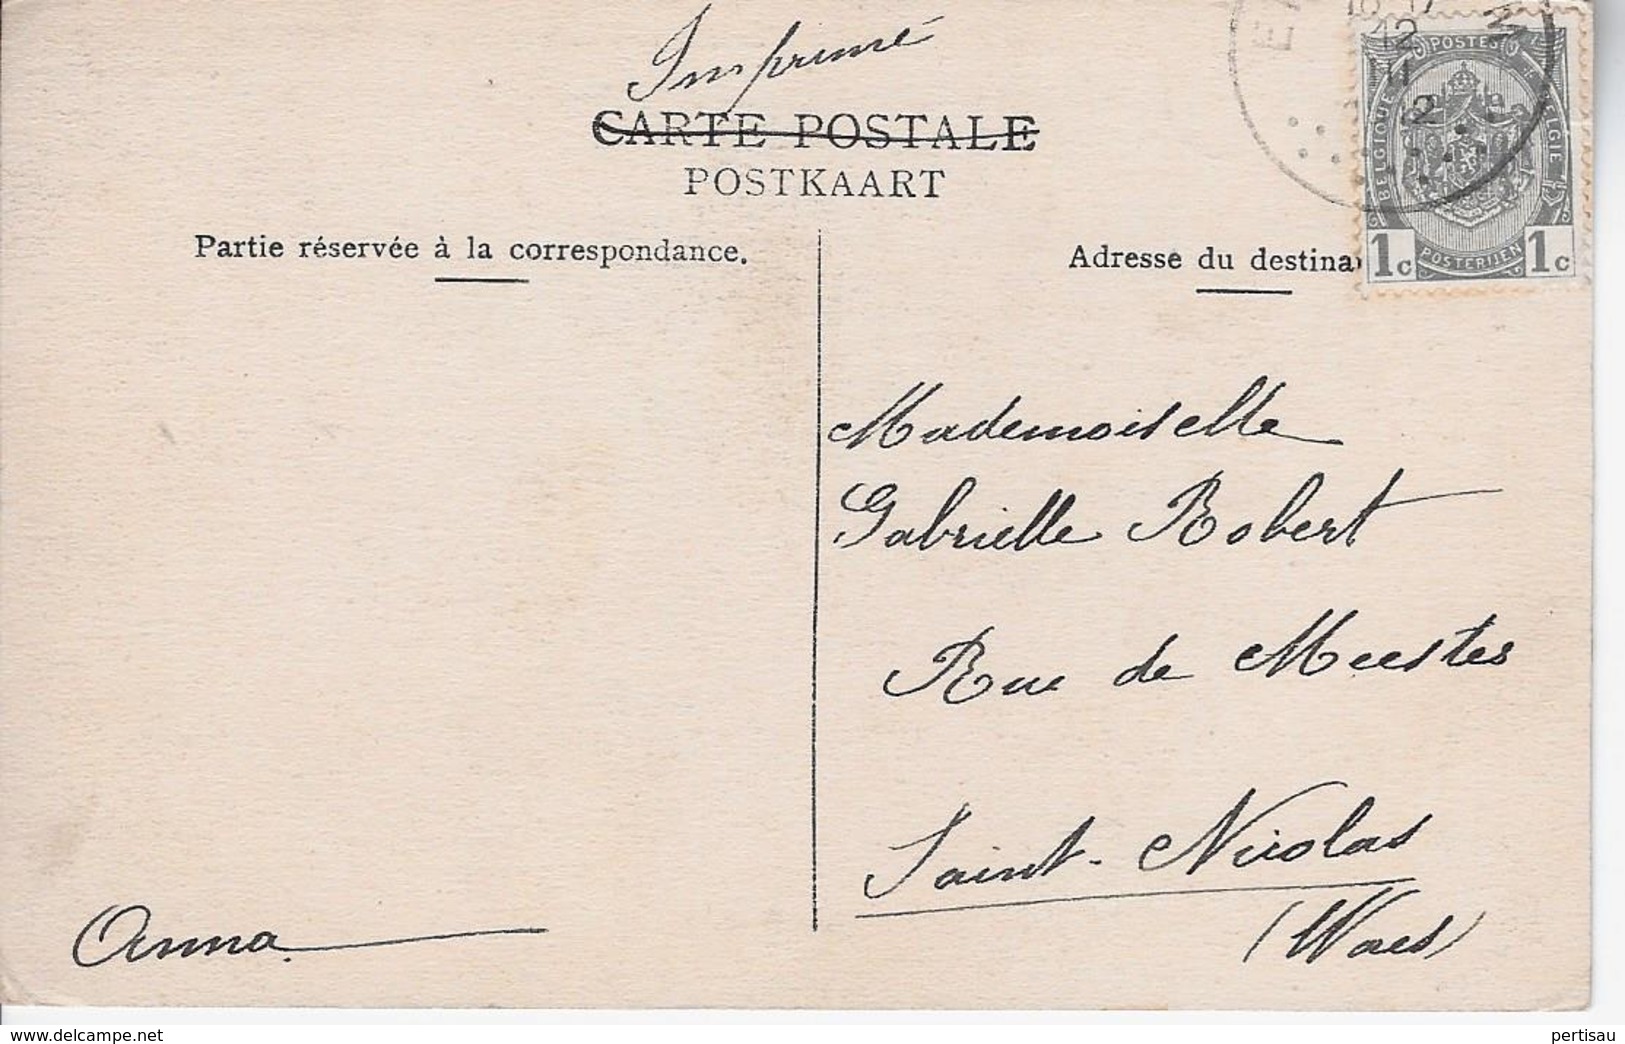 Imprimé
CARTE POSTALE
POSTKAART
Partie réservée à la correspondance.
Adresse du destina
12
III
2
POSTES
BELGIQUE
BELGIE
POSTERIJEN
1c 1c
Mademoiselle
Gabrielle Robert
Rue de Meester
Saint-Nicolas
(Waes)
Anna
delcampe.net
pertisau